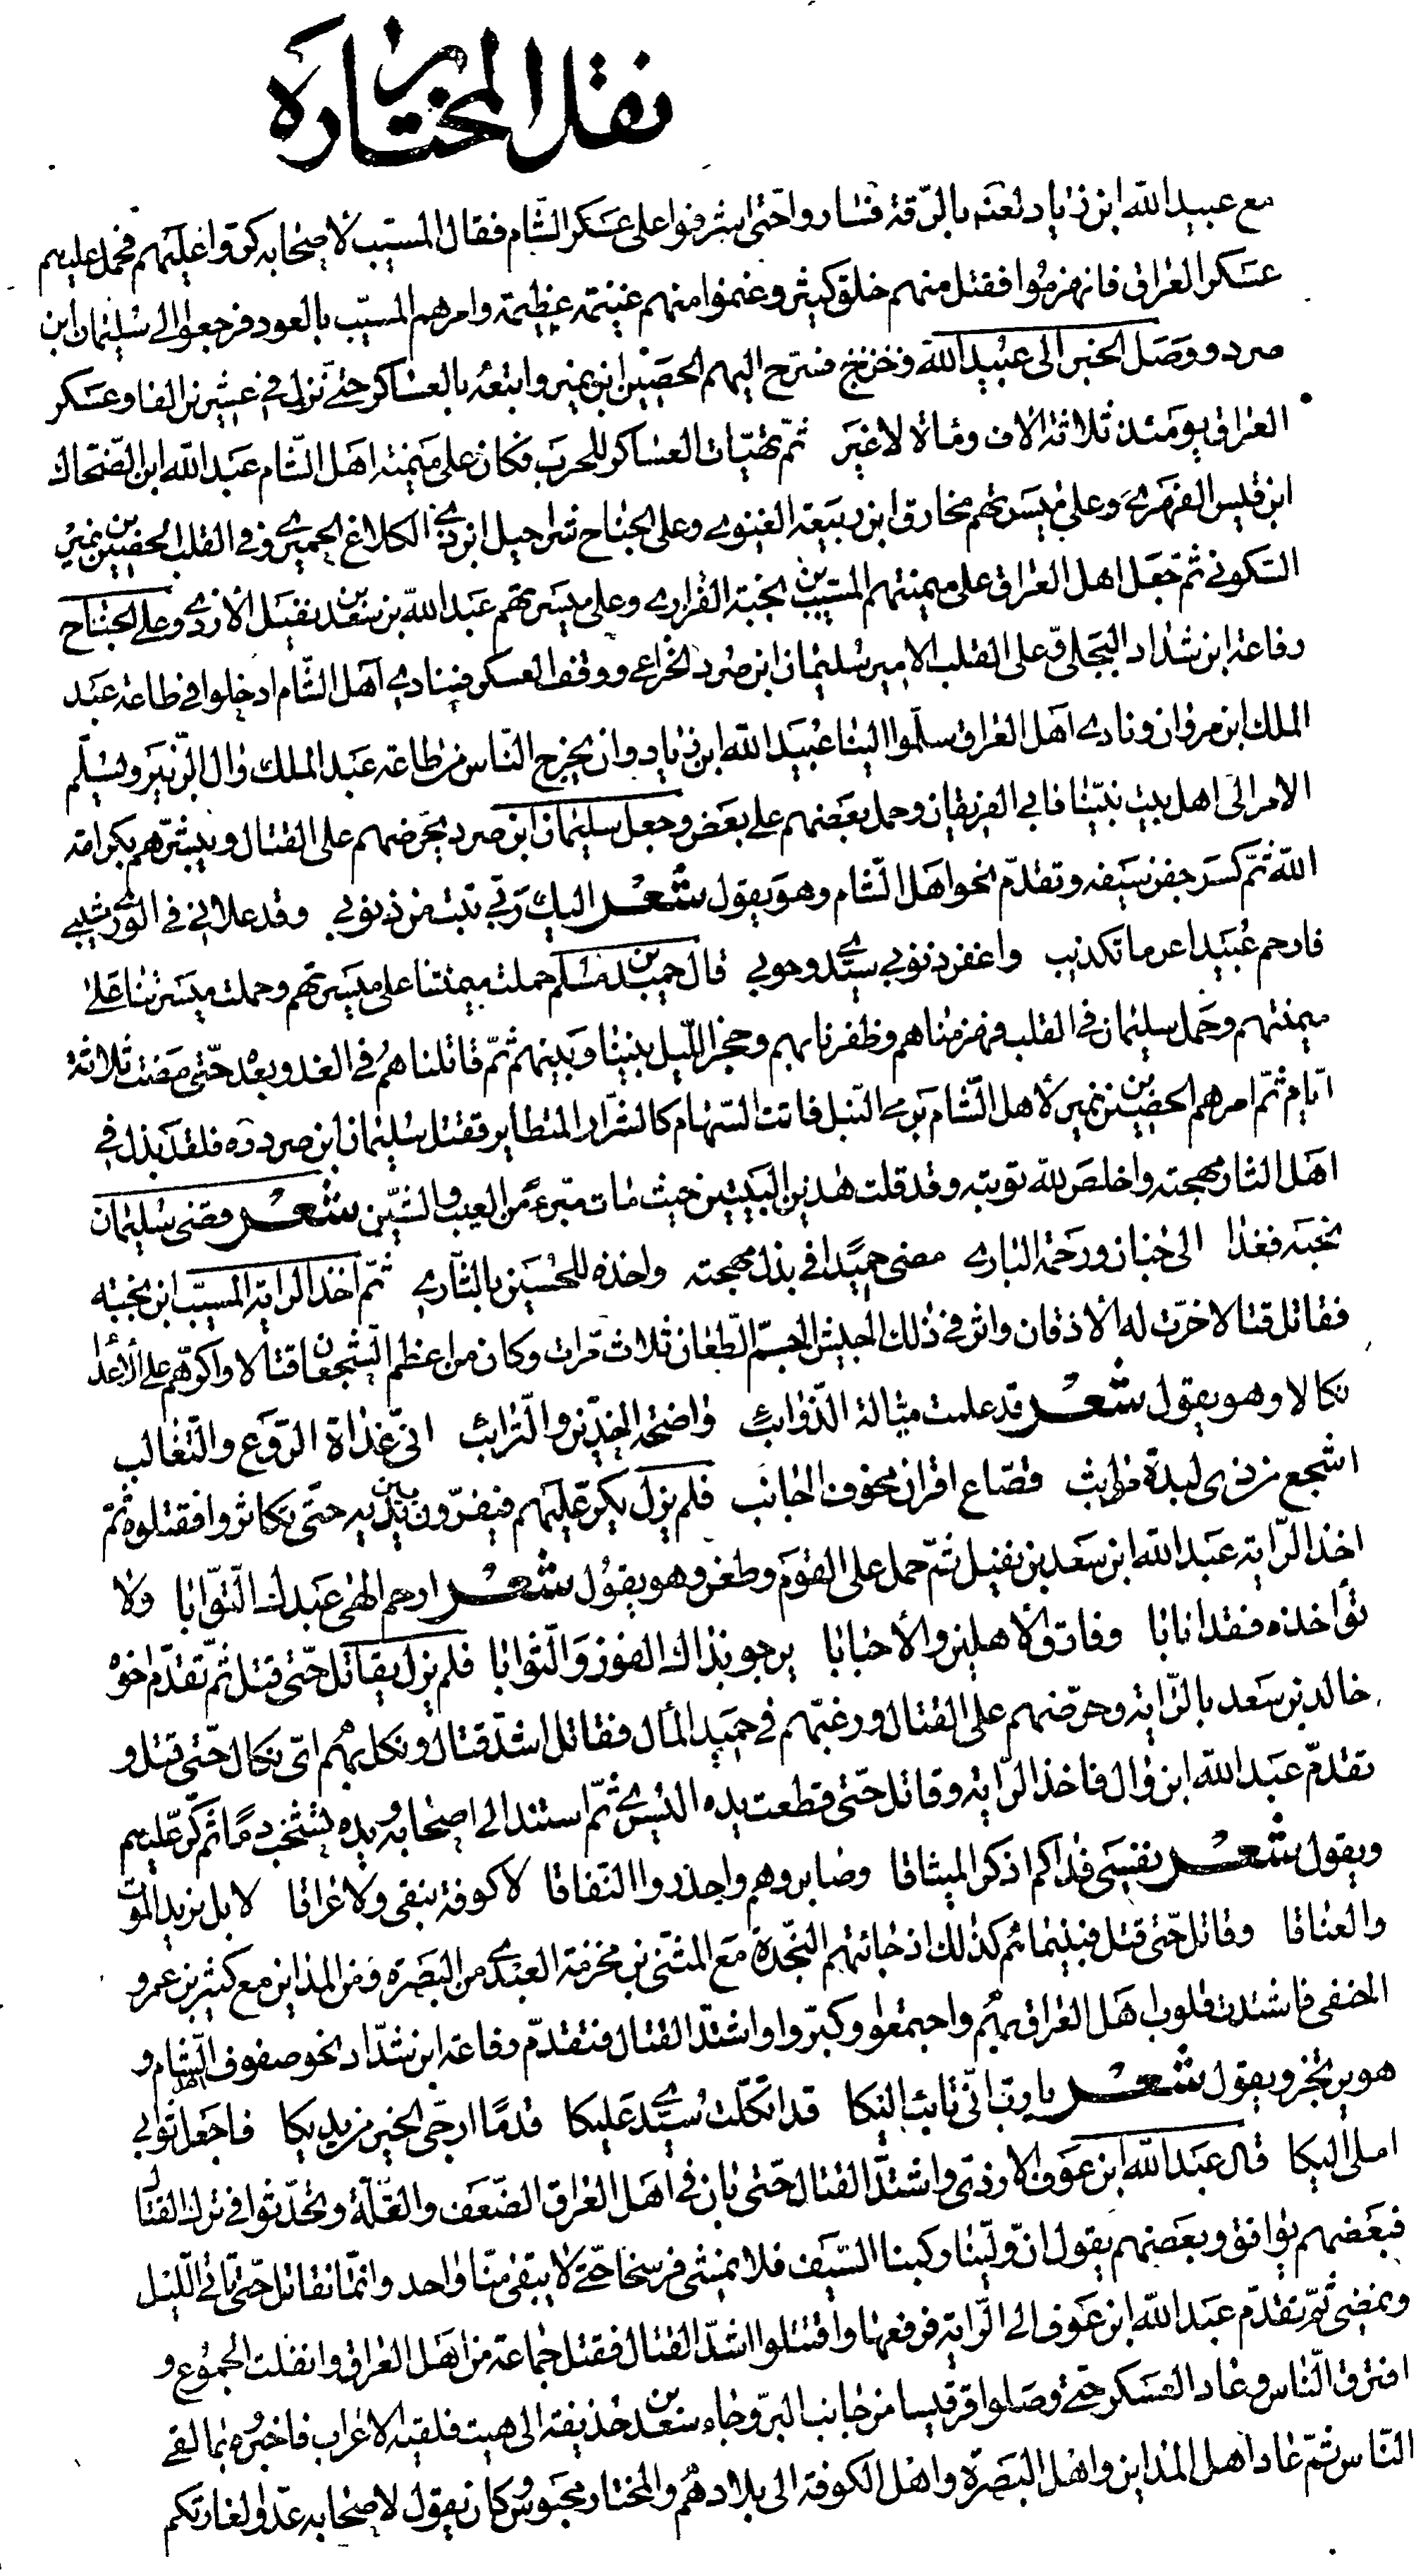 نقل المختاره
مع عبيد الله ابن زياد لعنه بالرقة فساروا حتى اشرفوا على عسكر الشام فقال المسيب لأصحابه كروا عليهم فحمل عليهم
عسكر العراق فانهزموا فقتل منهم خلق كثير وغنموا منهم غنيمة عظيمة وامرهم المسيب بالعود فرجعوا الى سليمان ابن
صرد ووصل الخبر الى عبيد الله فسرح اليهم الحصين ابن نمير واتبعه بالعساكر حتى نزل في عشرين الفا وعسكر
العراق يومئذ ثلاثة الاف ومائة لا غير ثم تهيات العساكر للحرب فكان على ميمنة اهل الشام عبد الله ابن الضحاك
ابن قيس الفهري وعلى ميسرتهم مخارق ابن ربيعة الغنوي وعلى الجناح شراحيل ابن ذي الكلاع الحميري وفي القلب الحصين بن نمير
السكوني ثم جعل اهل العراق على ميمنتهم المسيب بن نجبة الفزاري وعلى ميسرتهم عبد الله بن سعد بن نفيل الأزدي وعلى الجناح
رفاعة ابن شداد البجلي وعلى القلب الامير سليمان ابن صرد الخزاعي ووقف العسكر فنادى اهل الشام ادخلوا في طاعة عبد
الملك ابن مروان ونادى اهل العراق سلموا الينا عبيد الله ابن زياد وان يخرج الناس من طاعة عبد الملك وال الزبير ويسلم
الامر الى اهل بيت نبينا فابى الفريقان وحمل بعضهم على بعض وجعل سليمان ابن صرد يحرضهم على القتال ويبشرهم بكرامة
الله ثم كسر جفن سيفه وتقدم نحو اهل الشام وهو يقول شعر اليك ربي تبت من ذنوبي وقد علاني في الورى مشيبي
فارحم عبيدا عرما تكذيب واغفر ذنوبي سيدي وحوبي قال حميد بن مسلم حملت ميمنتنا على ميسرتهم وحملت ميسرتنا على
ميمنتهم وحمل سليمان في القلب فهزمناهم وظفرنا بهم وحجز الليل بيننا وبينهم ثم قاتلناهم في الغد وبعد حتى مضت ثلاثة
ايام ثم امرهم الحصين بن نمير لأهل الشام برمي النبل فاتت السهام كالشرار المتطاير فقتل سليمان ابن صرد ره فلقد بذل في
اهل الثار مهجته واخلص لله توبته وقد قلت هذين البيتين حيث مات مبرء من العيب والشين شعر قضى سليمان
نحبه فغدا الى جنان ورحمة الباري مضى حميدا في بذل مهجته واخذه للحسين بالثاري ثم اخذ الراية المسيب ابن نجبة
فقاتل قتالا خرت له الأذقان واثر في ذلك الجيش الجم الطعان ثلاث مرات وكان من اعظم الشجعان قتالا واكرهم على الأعداء
نكالا وهو يقول شعر قد علمت ميالة الذوائب واضحة الخدين والترائب اني غداة الروع والتغالب
اشجع من ذي لبدة مواثب قصاع اقران مخوف الجانب فلم يزل يكر عليهم فيفرون بين يديه حتى تكاثروا فقتلوه ثم
اخذ الراية عبد الله ابن سعد بن نفيل ثم حمل على القوم وطعن وهو يقول شعر ارحم الهي عبدك التوابا ولا
تؤاخذه فقد انابا وفارق الأهلين والأحبابا يرجو بذاك الفوز والثوابا فلم يزل يقاتل حتى قتل ثم تقدم اخوه
خالد بن سعد بالراية وحرضهم على القتال ورغبهم في حميد المأل فقاتل اشد قتال ونكل بهم اي نكال حتى قتل و
تقدم عبد الله ابن وال فاخذ الراية وقاتل حتى قطعت يده اليسرى ثم استند الى اصحابه ويده تشخب دما ثم كر عليهم
ويقول شعر نفسي فداكم اذكر الميثاقا وصابروهم واحذروا النفاقا لا كوفة نبغي ولا عراقا لا بل نريد الموت
والعناقا وقاتل حتى قتل فبينماهم كذلك اذ جائتهم النجدة مع المثنى بن مخرمة العبدي من البصرة ومن المداين مع كثير بن عمرو
الحنفي فاشتدت قلوب اهل العراق بهم واجتمعوا وكبروا واشتد القتال فتقدم رفاعة ابن شداد نحو صفوف اهل الشام و
هو يرتجز ويقول شعر يا رب اني تائب اليكا قد اتكلت سيدي عليكا قدما ارجى الخير من يديكا فاجعل ثوابي
املي اليكا قال عبد الله ابن عوف الازدي واشتد القتال حتى بان في اهل العراق الضعف والقلة وتحدثوا في ترك القتال
فبعضهم يوافق وبعضهم يقول ان ولينا ركبنا السيف فلا نمشي فرسخا حتى لا يبقى منا واحد وانما نقاتل حتى يأتي الليل
ونمضي ثم تقدم عبد الله ابن عوف الى الراية فرفعها واقتتلوا اشد القتال فقتل جماعة من اهل العراق وانفلت الجموع و
افترق الناس وعاد العسكر حتى وصلوا قرقيسا من جانب البر وجاء سعد بن حذيفة الى هيت فلقيه الاعراب فاخبروه بما لقي
الناس ثم عاد اهل المداين واهل البصرة واهل الكوفة الى بلادهم والمختار محبوس وكان يقول لاصحابه عدوا لغارتكم